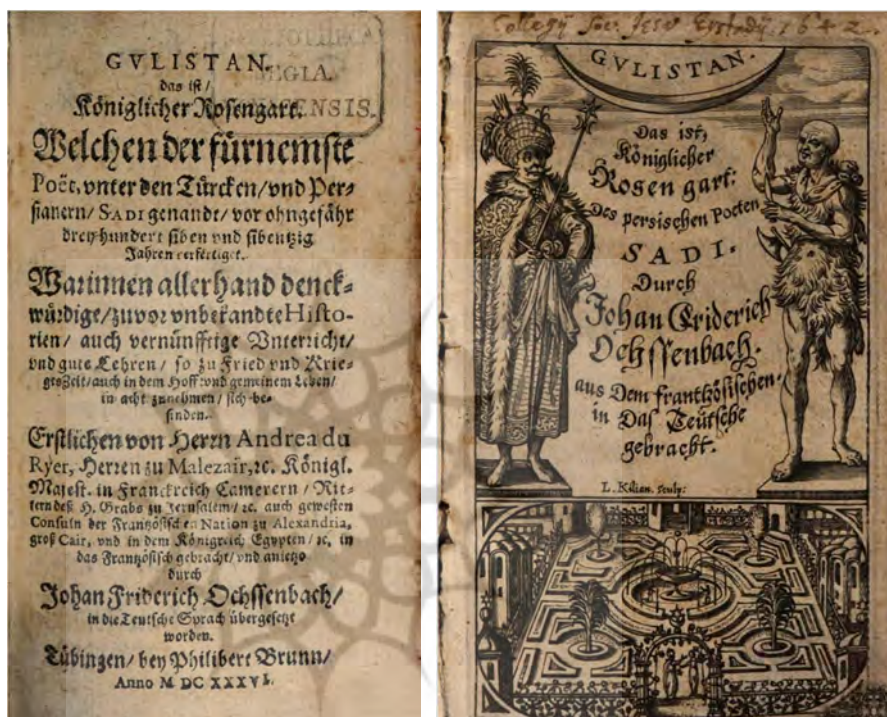 GVLISTAN.
das ist/
Königlicher Rosengart.
Welchen der fürnemste
Poët, vnter den Türcken/vnd Per-
sianern/ SADI genandt/ vor ohngefähr
dreyhundert siben vnd sibentzig
Jahren verfertiget.
Warinnen allerhand denck-
würdige/zuvor vnbekandte Histo-
rien/ auch vernünfftige Vnterricht/
vnd gute Lehren/ so zu Fried vnd Krie-
gesZeit/auch in dem Hoff vnd gemeinem Leben/
in acht zunehmen/ sich be-
finden.
Erstlichen von Herrn Andrea du
Ryer, Herren zu Malezair, ꝛc. Königl.
Majest. in Franckreich Camerern/ Rit-
tern deß H. Grabs zu Jerusalem/ ꝛc. auch gewesten
Consuln der Frantzösischen Nation zu Alexandria,
groß Cair, vnd in dem Königreich Egypten/ ꝛc, in
das Frantzösisch gebracht/ vnd anietzo
durch
Johan Friderich Ochssenbach/
in die Teutsche Sprach übergesetzt
worden.
Tübingen/ bey Philibert Brunn/
Anno M DC XXXVI.
Collegij Soc. Jesv Eystadij. 1642.
GVLISTAN.
Das ist,
Königlicher
Rosen gart:
Des persischen Poeten
SADI.
Durch
Johan Friderich
Ochssenbach.
aus Dem frantzösischen.
in Das Teütsche
gebracht.
L. Kilian. sculp: